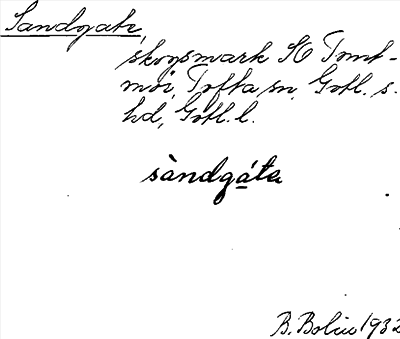 Sandgate,
skogsmark SO Tomt-
mör, Tofta sn, Gotl. s.
hd, Gotl. l.
sàndgáta
B. Bolin 1932